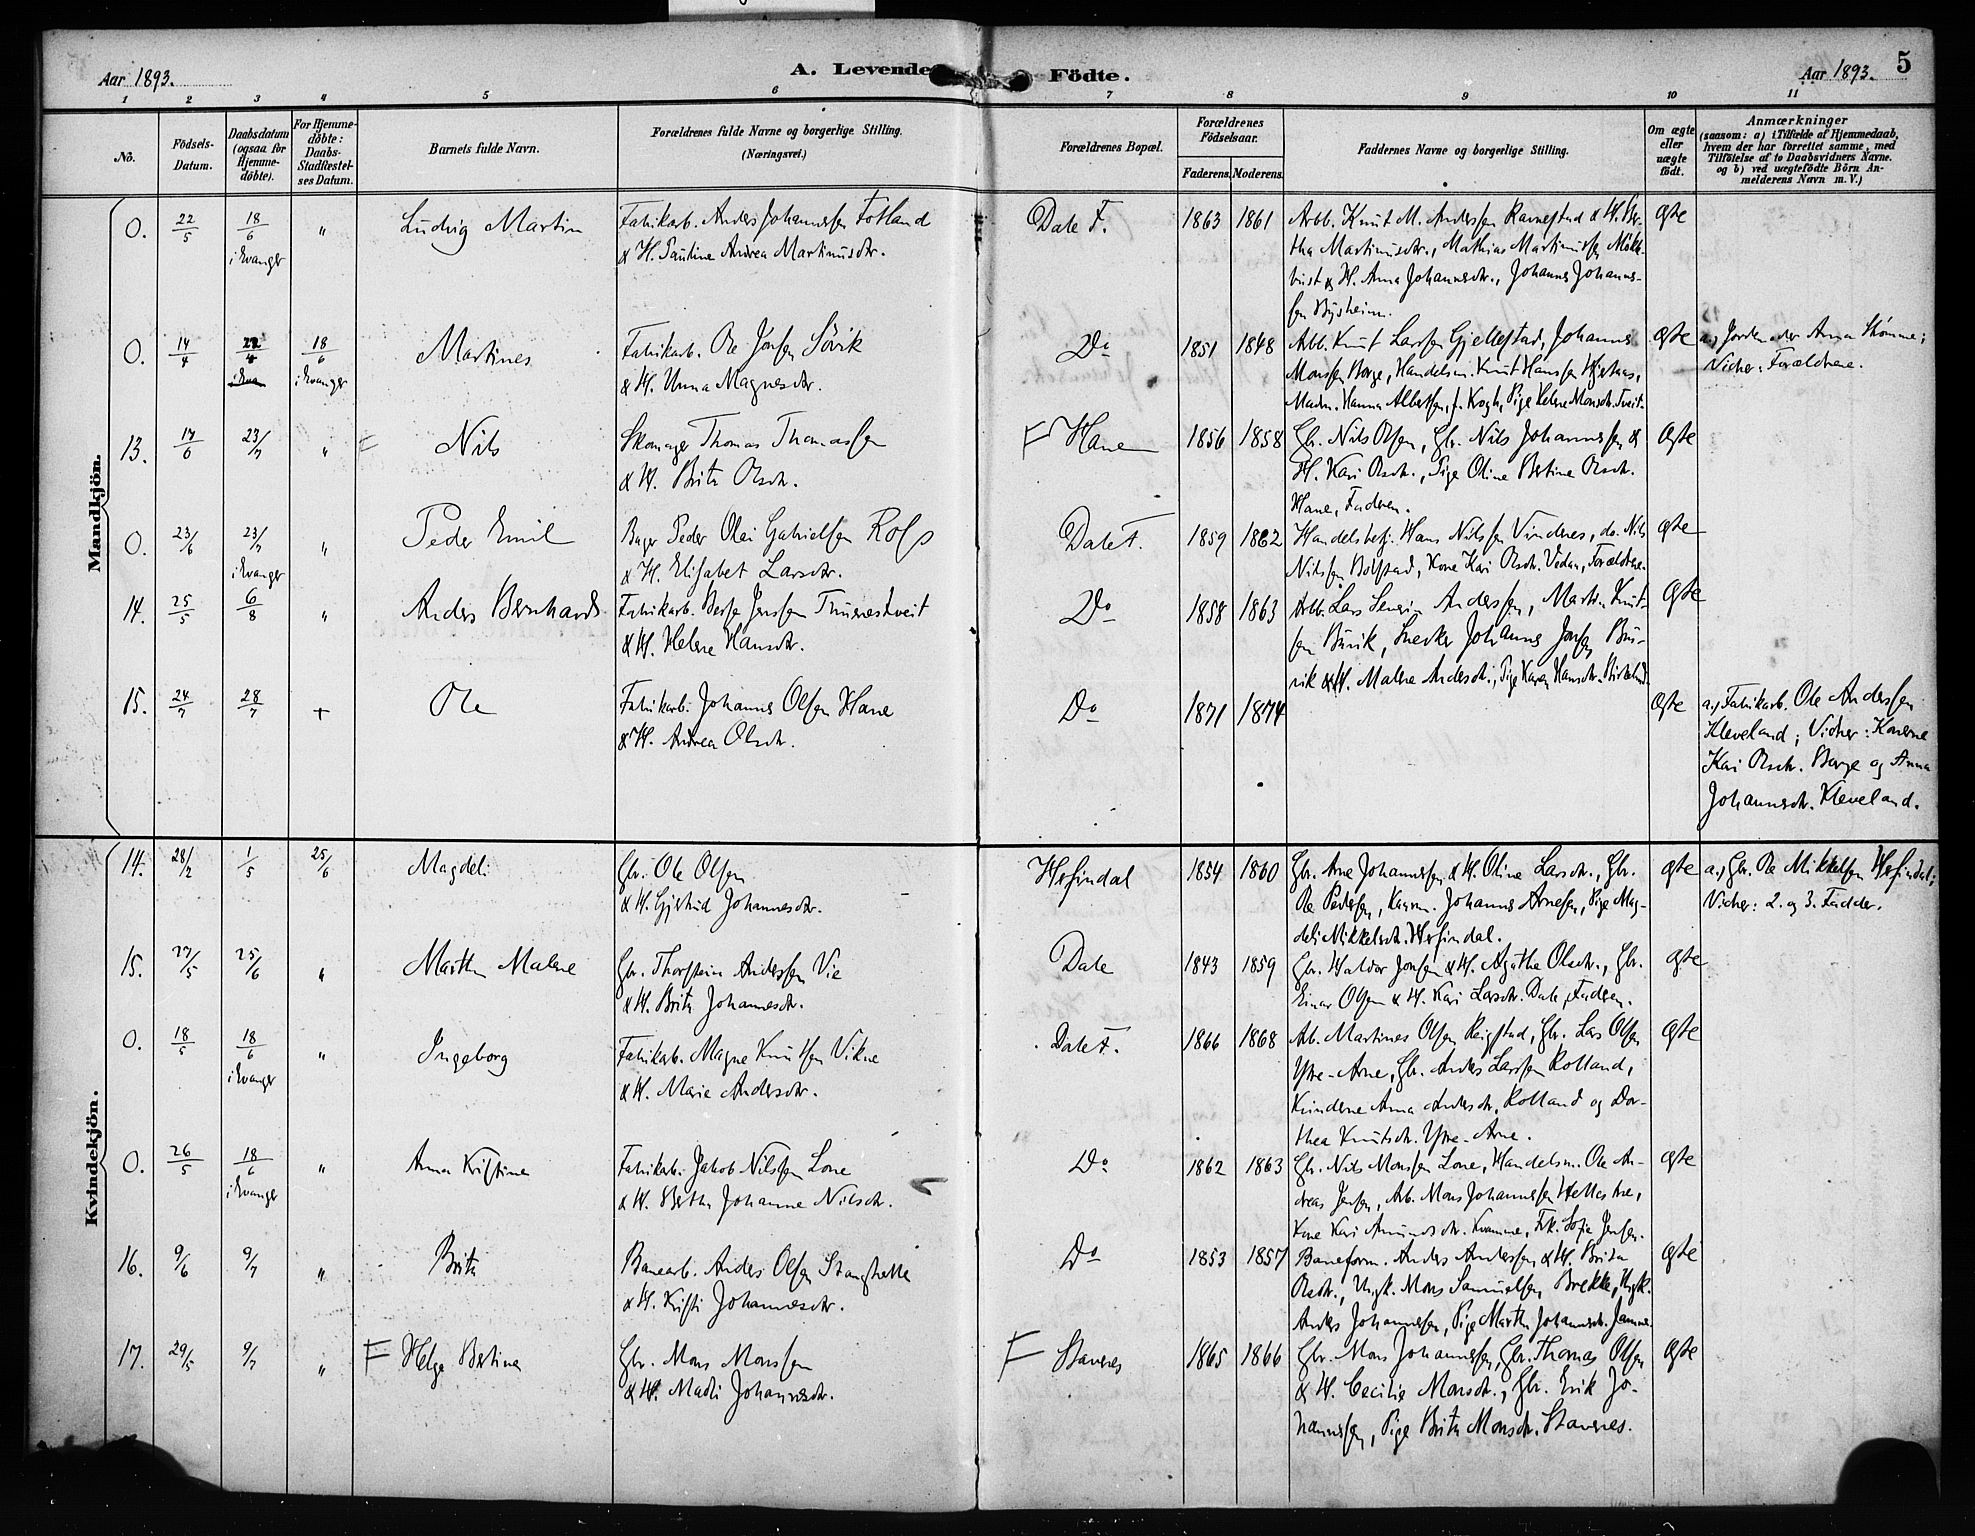 Aar 1893.
A. Levende Födte.
Aar 1893.
5
1 2 3 4 5 6 7 8 9 10 11
No.
Födsels-
Datum.
Daabsdatum
(ogsaa for
Hjemme-
döbte).
For Hjemme-
döbte:
Daabs-
Stadfæstel-
ses Datum.
Barnets fulde Navn.
Forældrenes fulde Navne og borgerlige Stilling.
(Næringsvei.)
Forældrenes Bopæl.
Forældrenes
Födselsaar.
Faderens.
Moderens.
Faddernes Navne og borgerlige Stilling.
Om ægte
eller
uægte
født.
Anmærkninger
(saasom: a) i Tilfælde af Hjemmedaab,
hvem der har forrettet samme, med
Tilföielse af to Daabsvidners Navne.
og b) ved uægtefödte Börn An-
melderens Navn m. V.)
Mandkjön.
0. 22/5 18/6 i Evanger " Ludvig Martin
Fabrikarb. Anders Johannesen Fotland
& H. Pauline Andrea Martinusdtr.
Dale F. 1863 1861
Arb. Knut M. Anderssen Ravnestad & H. Ber-
tha Martinusdtr., Mathias Martinussen
& H. Anna Johannesdtr., Johannes Johannes-
sen Bysheim.
Ægte
0. 14/4 18/6 i Evanger Martines
Fabrikarb. Ole Jonsen Sövik
& H. Unna Magnesdtr.
Do 1851 1848
Arb. Knut Larssen Gjellestad, Johannes
Monssen Borge, Handelsm. Knut Hanssen
Madm. Hanna Albertsen, f. Krogh, Pige Helene Monsdtr. Tveit.
Ægte
a.) Jordemoder Anna Skömme;
Vidner: Forældrene.
13. 17/6 23/7 " F Nils
Skomager Thomas Thomassen
& H. Brita Olsdr.
F Hane 1856 1858
Gbr. Nils Olsen, Gbr. Nils Johannessen &
H. Kari Olsdr., Pige Oline Bertine Olsdr.
Hane, Faderen.
Ægte
0. 23/6 23/7 i Evanger " Peder Emil
Bager Peder Olei Gabrielsen Rofs
& H. Elisabet Larsdtr.
Dale F. 1859 1862
Handelsbetj. Hans Nilssen Vindnes, do. Nils
Nilssen Bolstad, Kone Kari Olsdr. Vedan, Forældrene.
Ægte
14. 25/5 6/8 " Anders Bernhards
Fabrikarb. Berje Jenssen Thunestveit
& H. Helene Hansdtr.
Do 1858 1863
Arb. Lars Severin Anderssen, Martin Knut-
sen Burik, Snedker Johannes Jonsen Bu-
rik & H. Malene Andersdtr., Pige Karen Hansdtr. Birkeland.
Ægte
15. 24/7 28/7 + Ole
Fabrikarb. Johannes Olsen Hane
& H. Andrea Olsdr.
Do 1871 1874
Ægte
a.) Fabrikarb. Ole Anderssen
Kleveland; Vidner: Konerne
Kari Olsdr. Borge og Anna
Johannesdtr. Kleveland.
Kvindekjön.
14. 28/2 1/5 25/6 Magdeli
Gbr. Ole Olsen
& H. Gjertrud Johannesdtr.
Hesjindal 1854 1860
Gbr. Arne Johannessen & H. Oline Larsdtr., Gbr.
Ole Pedersen, Johannes Arnesen, Pige Mag-
deli Mikkelsdtr. Hesjindal.
ægte
a.) Gbr. Ole Mikkelsen Hesjindal;
Vidner: 2. og 3. Fadder.
15. 27/5 25/6 " Martha Malene
Gbr. Thorstein Anderssen Vie
& H. Brita Johannesdtr.
Dale 1843 1859
Gbr. Haldor Jonsen & H. Agatha Olsdtr., Gbr.
Einar Olsen & H. Kari Larsdtr. Dale, Faderen.
ægte
0. 18/5 18/6 i Evanger " Ingeborg
Fabrikarb. Magne Knutsen Vikne
& H. Marie Andersdtr.
Dale F. 1866 1868
Arb. Martines Olsen Reigstad, Gbr. Lars Olsen
Ytre-Arne, Gbr. Anders Larssen Rolland,
Kvinderne Anna Andersdtr. Rolland og Dor-
thea Knutsdtr. Ytre-Arne.
Ægte
0. 26/5 18/6 i Evanger " Anna Kristine
Fabrikarb. Jakob Nilssen Lone
& H. Bertha Johanne Nilsdtr.
Do 1862 1863
Gbr. Nils Monssen Lone, Handelsm. Ole An-
dreas Jensen, Arb. Mons Johannessen
Kone Kari Amundsdtr. Kvamme, Frk. Sofie Jensen.
ægte
16. 9/6 9/7 " Brita
Banearb. Anders Olsen Stanghelle
& H. Kristi Johannesdtr.
Do 1853 1857
Baneform. Anders Anderssen & H. Brita
Olsdtr., Ungk. Mons Samuelsen Brekke, Ungk.
Anders Johannessen, Pige Martha Johannesdtr. Jamne.
ægte
17. 29/5 9/7 " F Helga Bertina
Gbr. Mons Monssen
& H. Madli Johannesdtr.
F Stavenes 1865 1866
Gbr. Mons Johannessen, Gbr. Thomas Olsen
& H. Cecilie Monsdtr., Gbr. Erik Jo-
hannessen, Pige Brita Monsdtr. Stavenes.
ægte